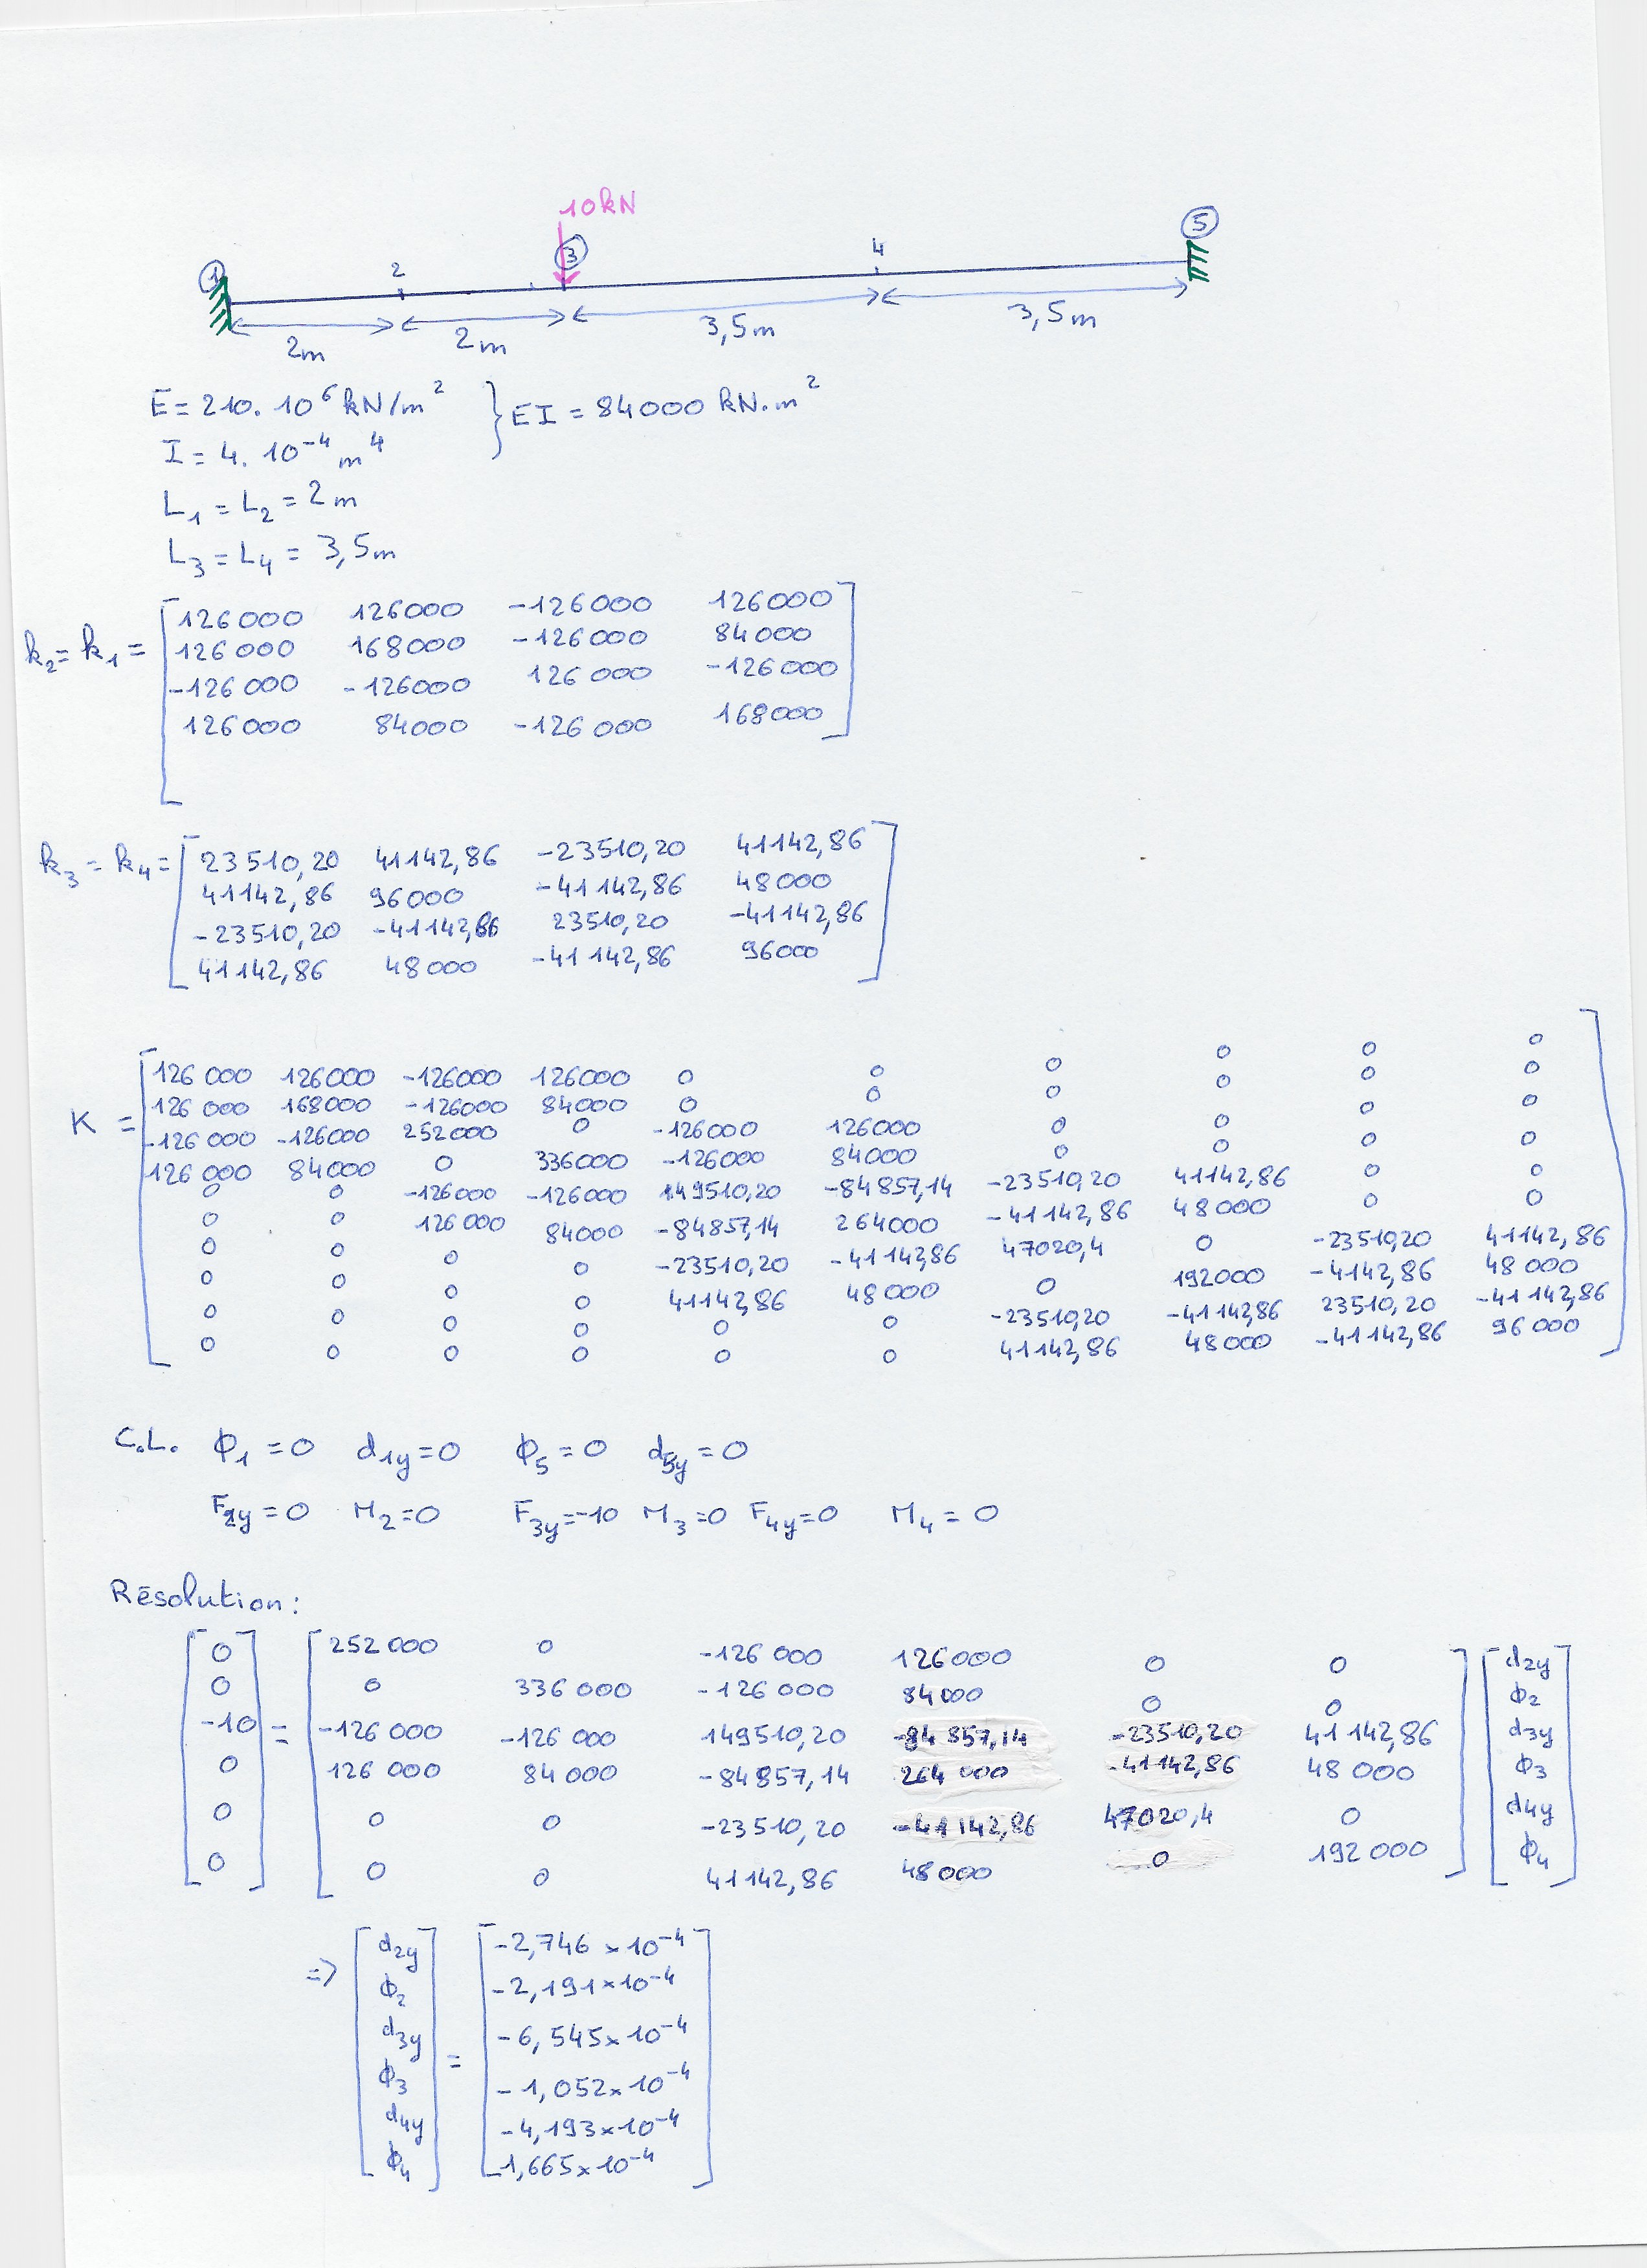 10kN
1 2 3 4 5
2m 2m 3,5m 3,5m
E = 210. 10⁶ kN/m² } EI = 84000 kN.m²
I = 4. 10⁻⁴ m⁴
L₁ = L₂ = 2m
L₃ = L₄ = 3,5m
126000 126000 -126000 126000
k₂ = k₁ = 126000 168000 -126000 84000
-126000 -126000 126000 -126000
126000 84000 -126000 168000
k₃ = k₄ = 23510,20 41142,86 -23510,20 41142,86
41142,86 96000 -41142,86 48000
-23510,20 -41142,86 23510,20 -41142,86
41142,86 48000 -41142,86 96000
126000 126000 -126000 126000 0 0 0 0 0 0
K = 126000 168000 -126000 84000 0 0 0 0 0 0
-126000 -126000 252000 0 -126000 126000 0 0 0 0
126000 84000 0 336000 -126000 84000 0 0 0 0
0 0 -126000 -126000 149510,20 -84857,14 -23510,20 41142,86 0 0
0 0 126000 84000 -84857,14 264000 -41142,86 48000 0 0
0 0 0 0 -23510,20 -41142,86 47020,4 0 -23510,20 41142,86
0 0 0 0 41142,86 48000 0 192000 -4142,86 48000
0 0 0 0 0 0 -23510,20 -41142,86 23510,20 -41142,86
0 0 0 0 0 0 41142,86 48000 -41142,86 96000
C.L. ϕ₁ = 0 d₁y = 0 ϕ₅ = 0 d₅y = 0
F₂y = 0 M₂ = 0 F₃y = -10 M₃ = 0 F₄y = 0 M₄ = 0
Résolution :
0 252000 0 -126000 126000 0 0 d₂y
0 0 336000 -126000 84000 0 0 ϕ₂
-10 = -126000 -126000 149510,20 -84857,14 -23510,20 41142,86 d₃y
0 126000 84000 -84857,14 264000 -41142,86 48000 ϕ₃
0 0 0 -23510,20 -41142,86 47020,4 0 d₄y
0 0 0 41142,86 48000 0 192000 ϕ₄
=> d₂y -2,746 × 10⁻⁴
ϕ₂ -2,191 × 10⁻⁴
d₃y -6,545 × 10⁻⁴
ϕ₃ = -1,052 × 10⁻⁴
d₄y -4,193 × 10⁻⁴
ϕ₄ 1,665 × 10⁻⁴